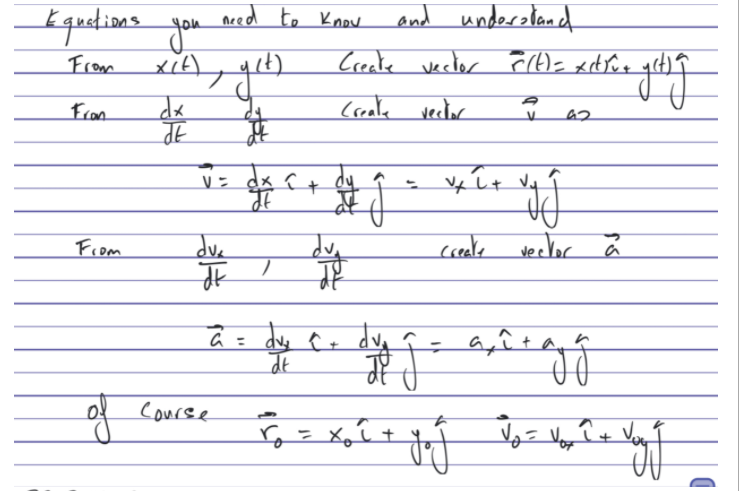 Equations you need to know and understand
From x(t), y(t) Create vector r⃗(t) = x(t)î + y(t)ĵ
From dx/dt dy/dt Create vector v⃗ as
v⃗ = dx/dt î + dy/dt ĵ = vₓ î + v_y ĵ
From dvₓ/dt, dv_y/dt create vector a⃗
a⃗ = dvₓ/dt î + dv_y/dt ĵ = aₓ î + a_y ĵ
of course r⃗₀ = x₀ î + y₀ ĵ v⃗₀ = v₀ₓ î + v₀_y ĵ